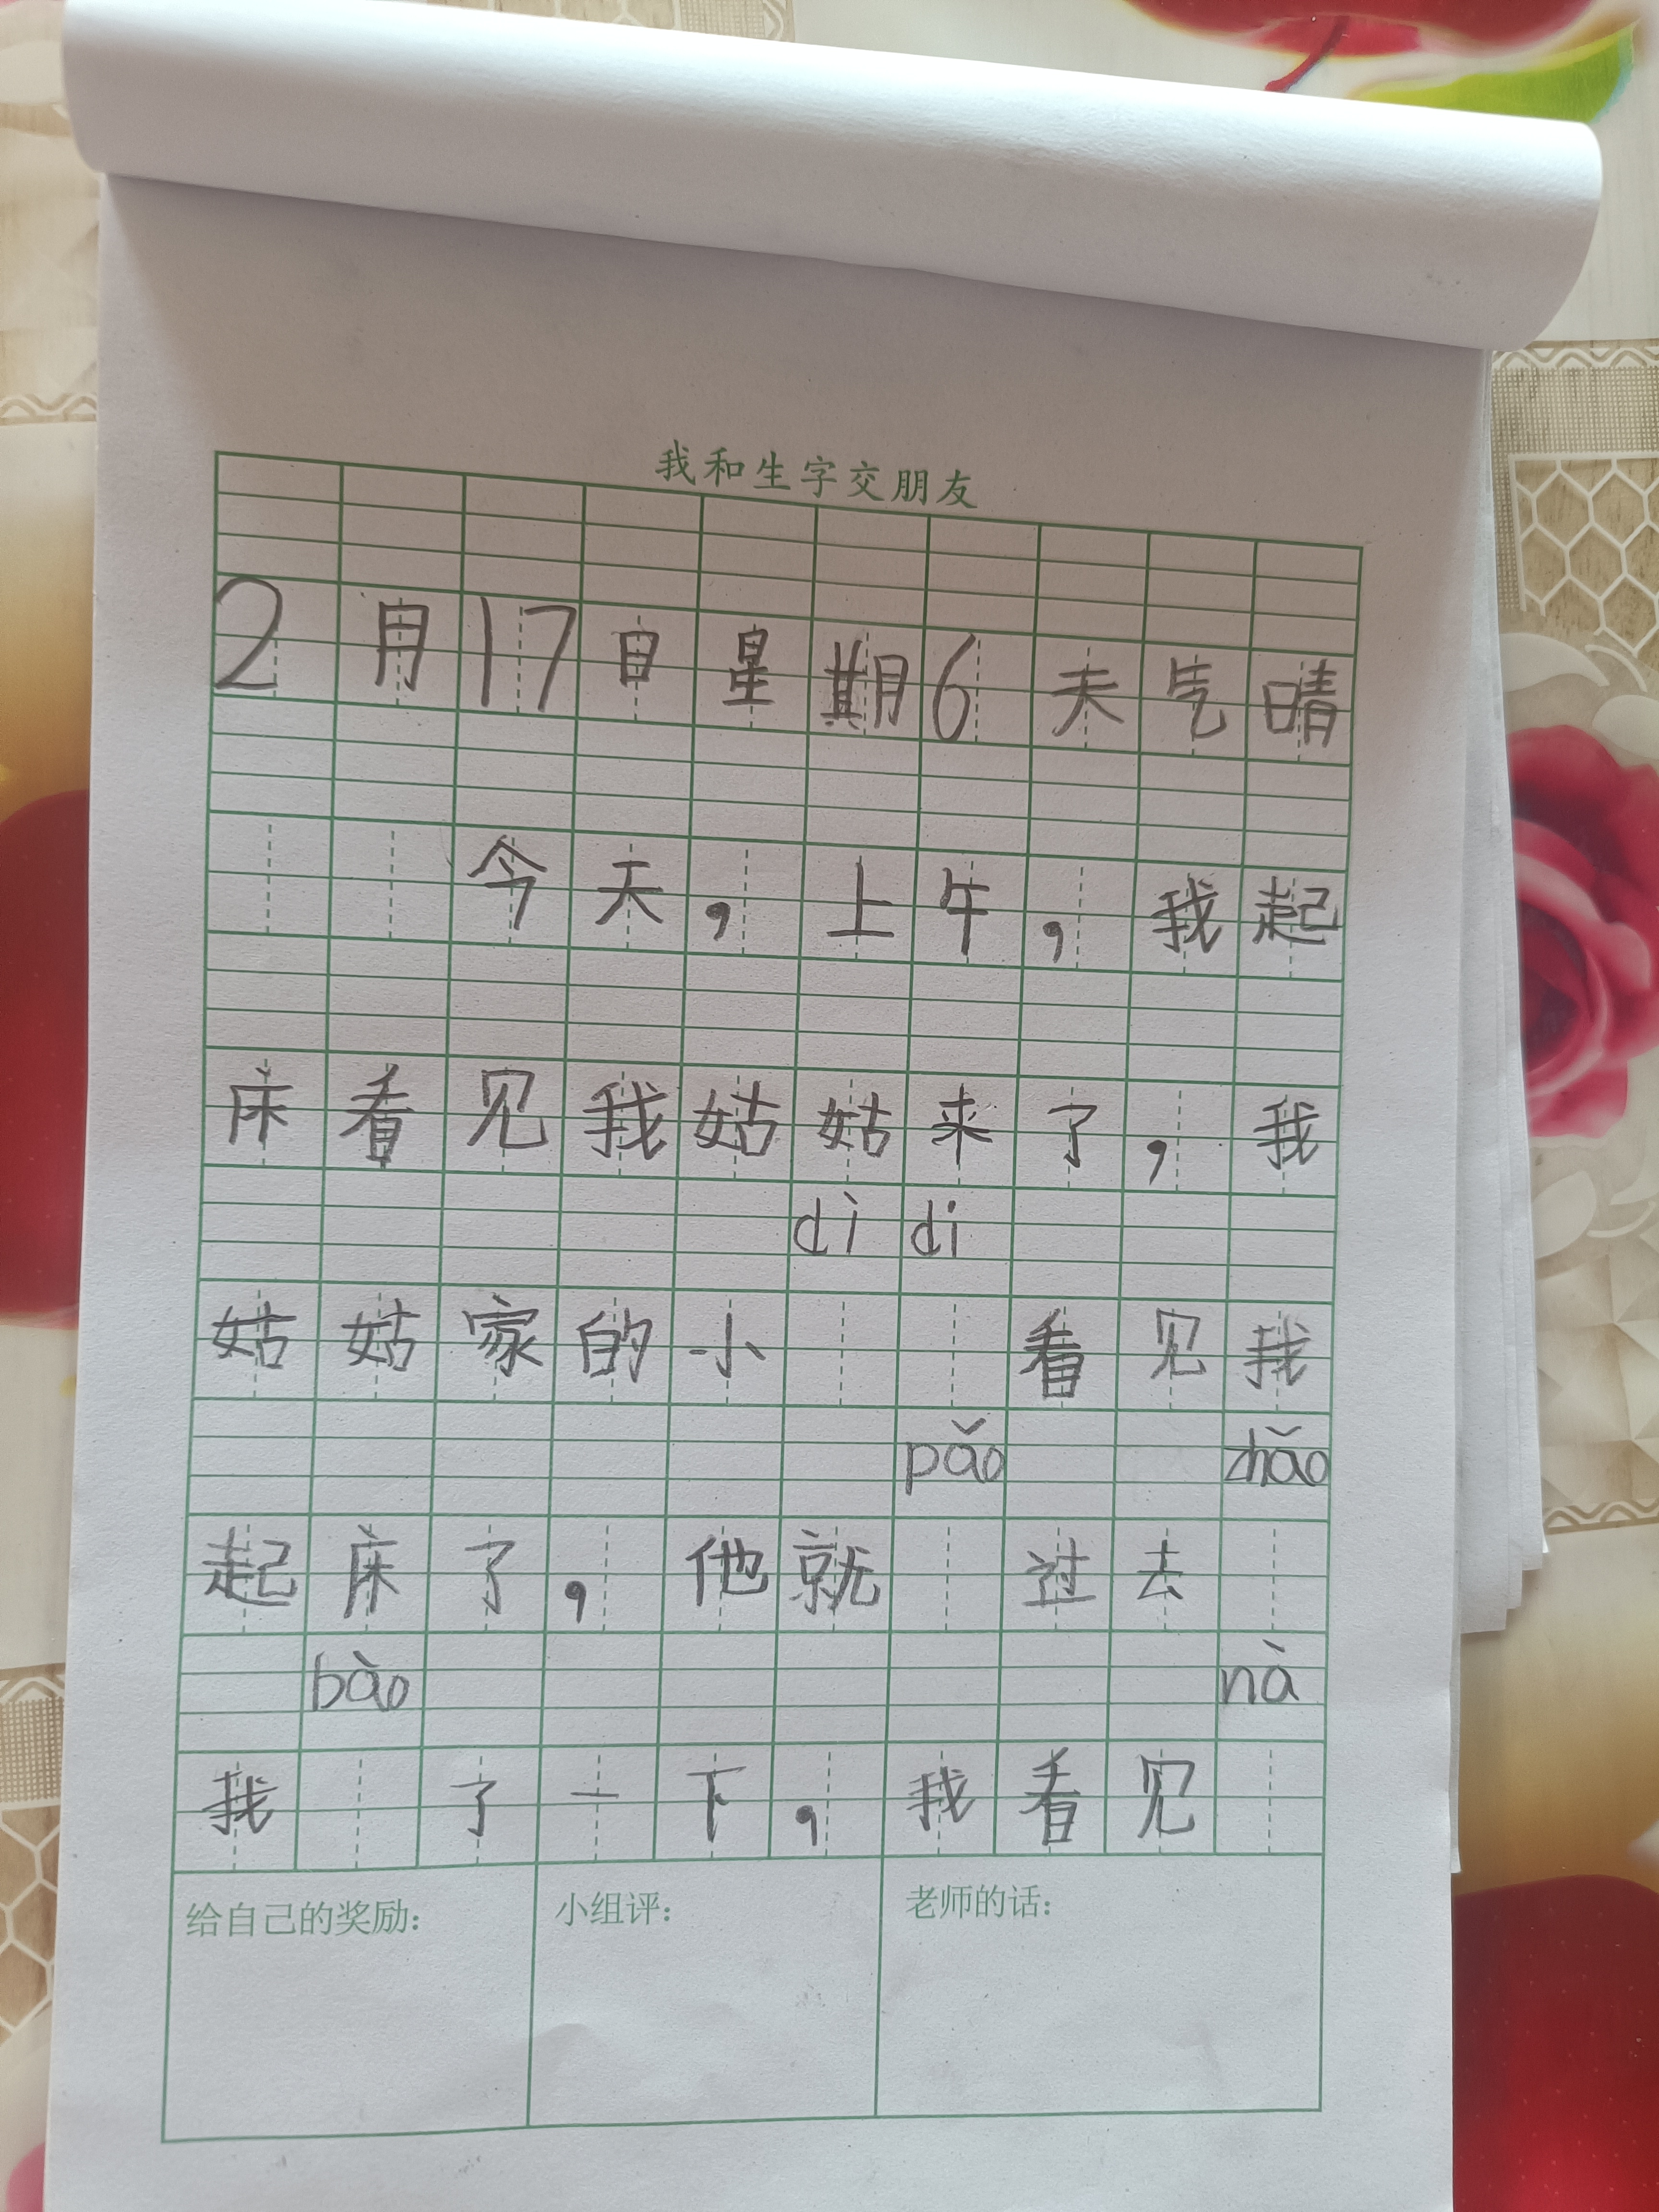 我和生字交朋友
2月17日星期6天气晴
今天，上午，我起
床看见我姑姑来了，我
dì di
姑姑家的小 看见我
pǎo zhǎo
起床了，他就 过去
bào nà
我 了一下，我看见
给自己的奖励： 小组评： 老师的话：